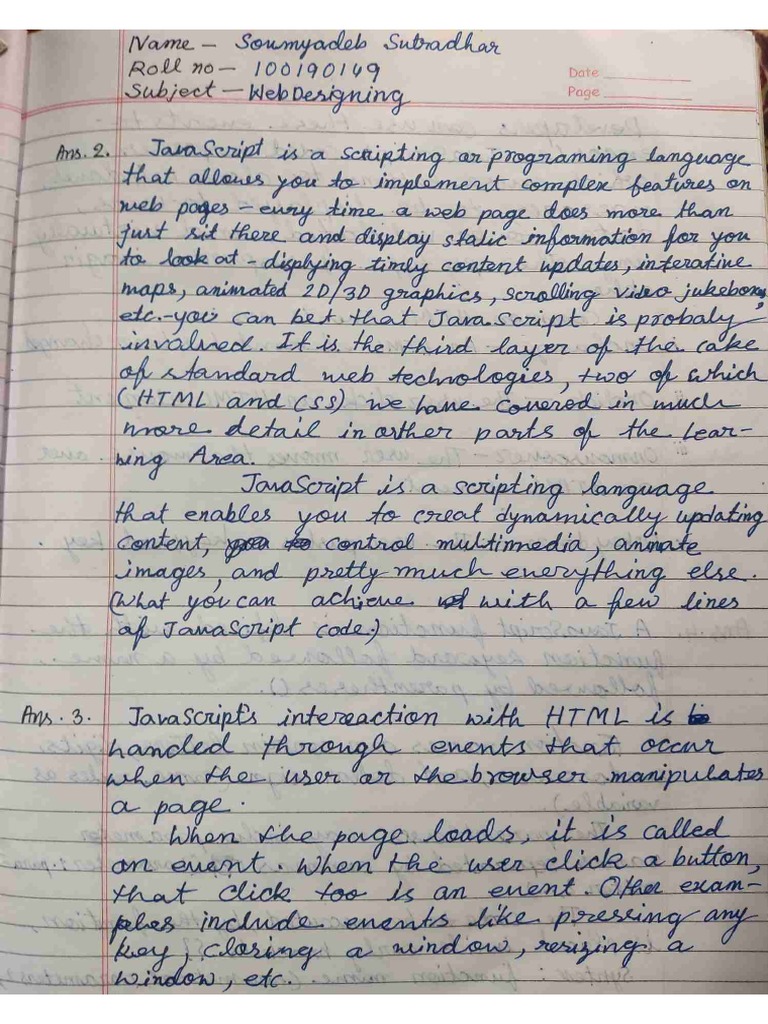 Name - Soumyadeb Sutradhar
Roll no - 100190149
Subject - Web Designing
Date
Page
Ans. 2. JavaScript is a scripting or programing language
that allows you to implement complex features on
web pages - every time a web page does more than
just sit there and display static information for you
to look at - displying timly content updates, interative
maps, animated 2D/3D graphics, scrolling video jukeboxes,
etc. - you can bet that JavaScript is probaly
involved. It is the third layer of the cake
of standard web technologies, two of which
(HTML and CSS) we have covered in much
more detail in other parts of the Lear-
ning Area.
JavaScript is a scripting language
that enables you to creat dynamically updating
content, you to control multimedia, animate
images, and pretty much everything else.
(what you can achieve with a few lines
of JavaScript code.)
Ans. 3. JavaScript's interaction with HTML is
handed through events that occur
when the user or the browser manipulates
a page.
When the page loads, it is called
an event. When the user click a button,
that click too is an event. Other exam-
ples include events like pressing any
key, closing a window, resizing a
window, etc.